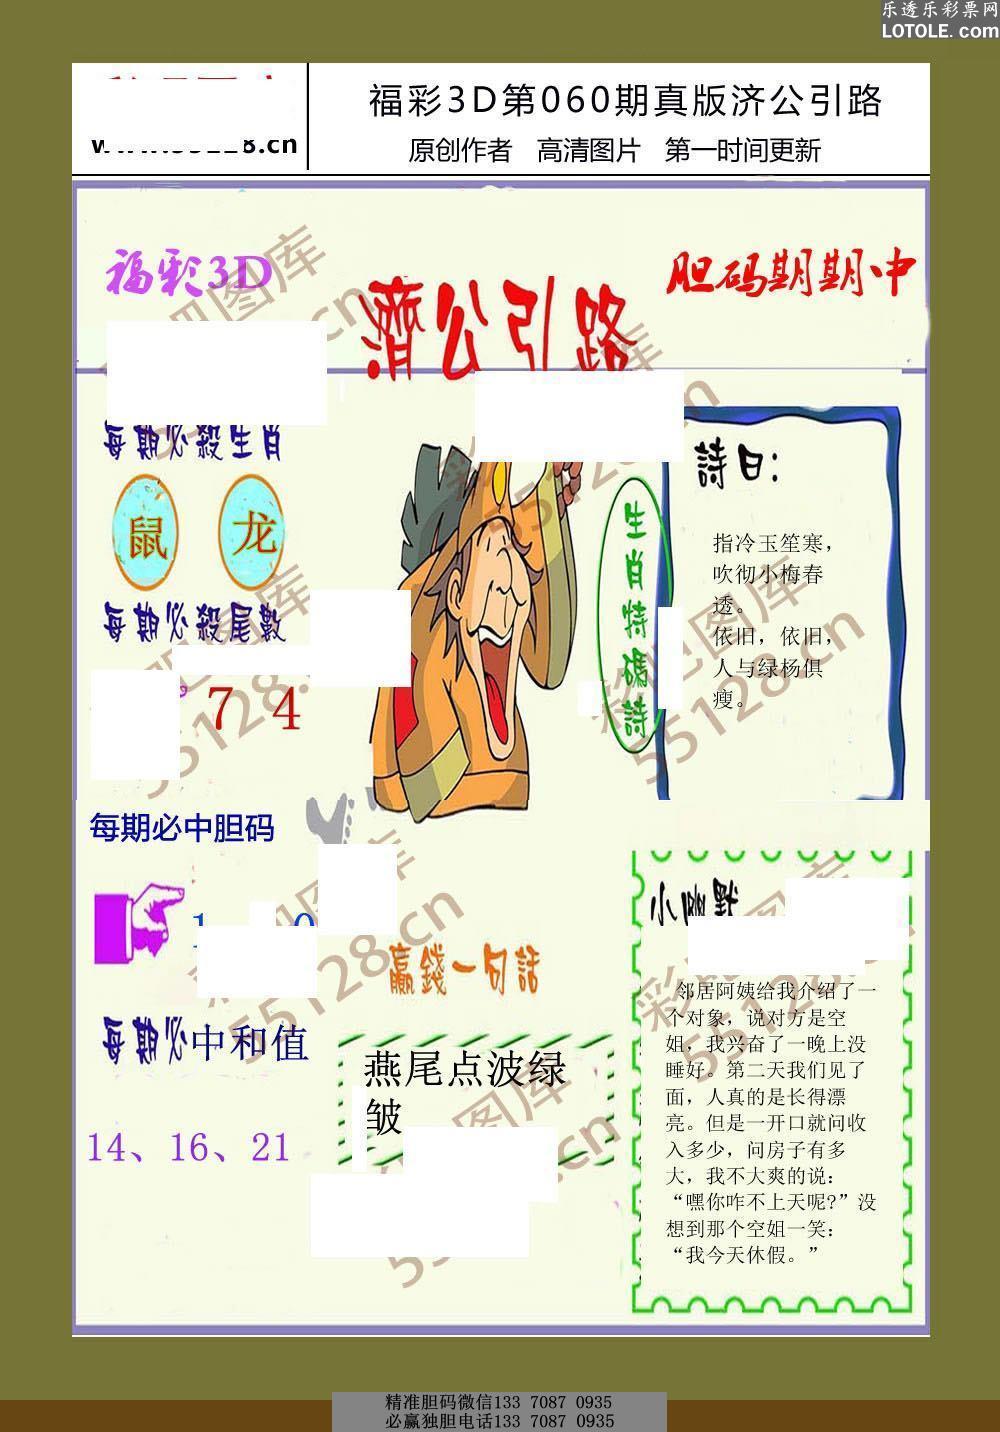 乐透乐彩票网
LOTOLE.com
福彩3D第060期真版济公引路
原创作者 高清图片 第一时间更新
福彩3D
濟公引路
胆码期期中
每期必殺生肖
鼠 龙
每期必殺尾數
7 4
生肖特碼詩
詩曰：
指冷玉笙寒，
吹彻小梅春
透。
依旧，依旧，
人与绿杨俱
瘦。
每期必中胆码
每期必中和值
14、16、21
赢錢一句話
燕尾点波绿
皱
小幽默
邻居阿姨给我介绍了一
个对象，说对方是空
姐，我兴奋了一晚上没
睡好。第二天我们见了
面，人真的是长得漂
亮。但是一开口就问收
入多少，问房子有多
大，我不大爽的说：
“嘿你咋不上天呢?”没
想到那个空姐一笑：
“我今天休假。”
彩吧图库
55128.cn
精准胆码微信133 7087 0935
必赢独胆电话133 7087 0935